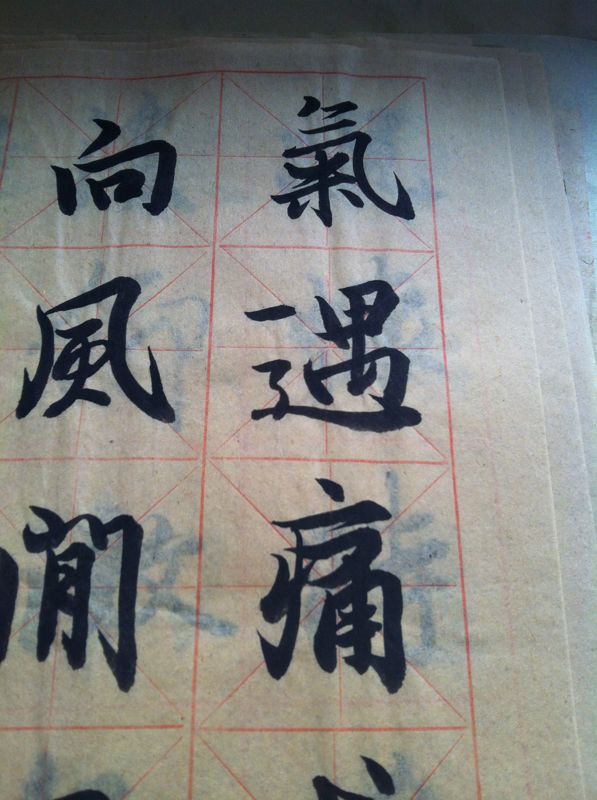 氣遇痛
向風閒